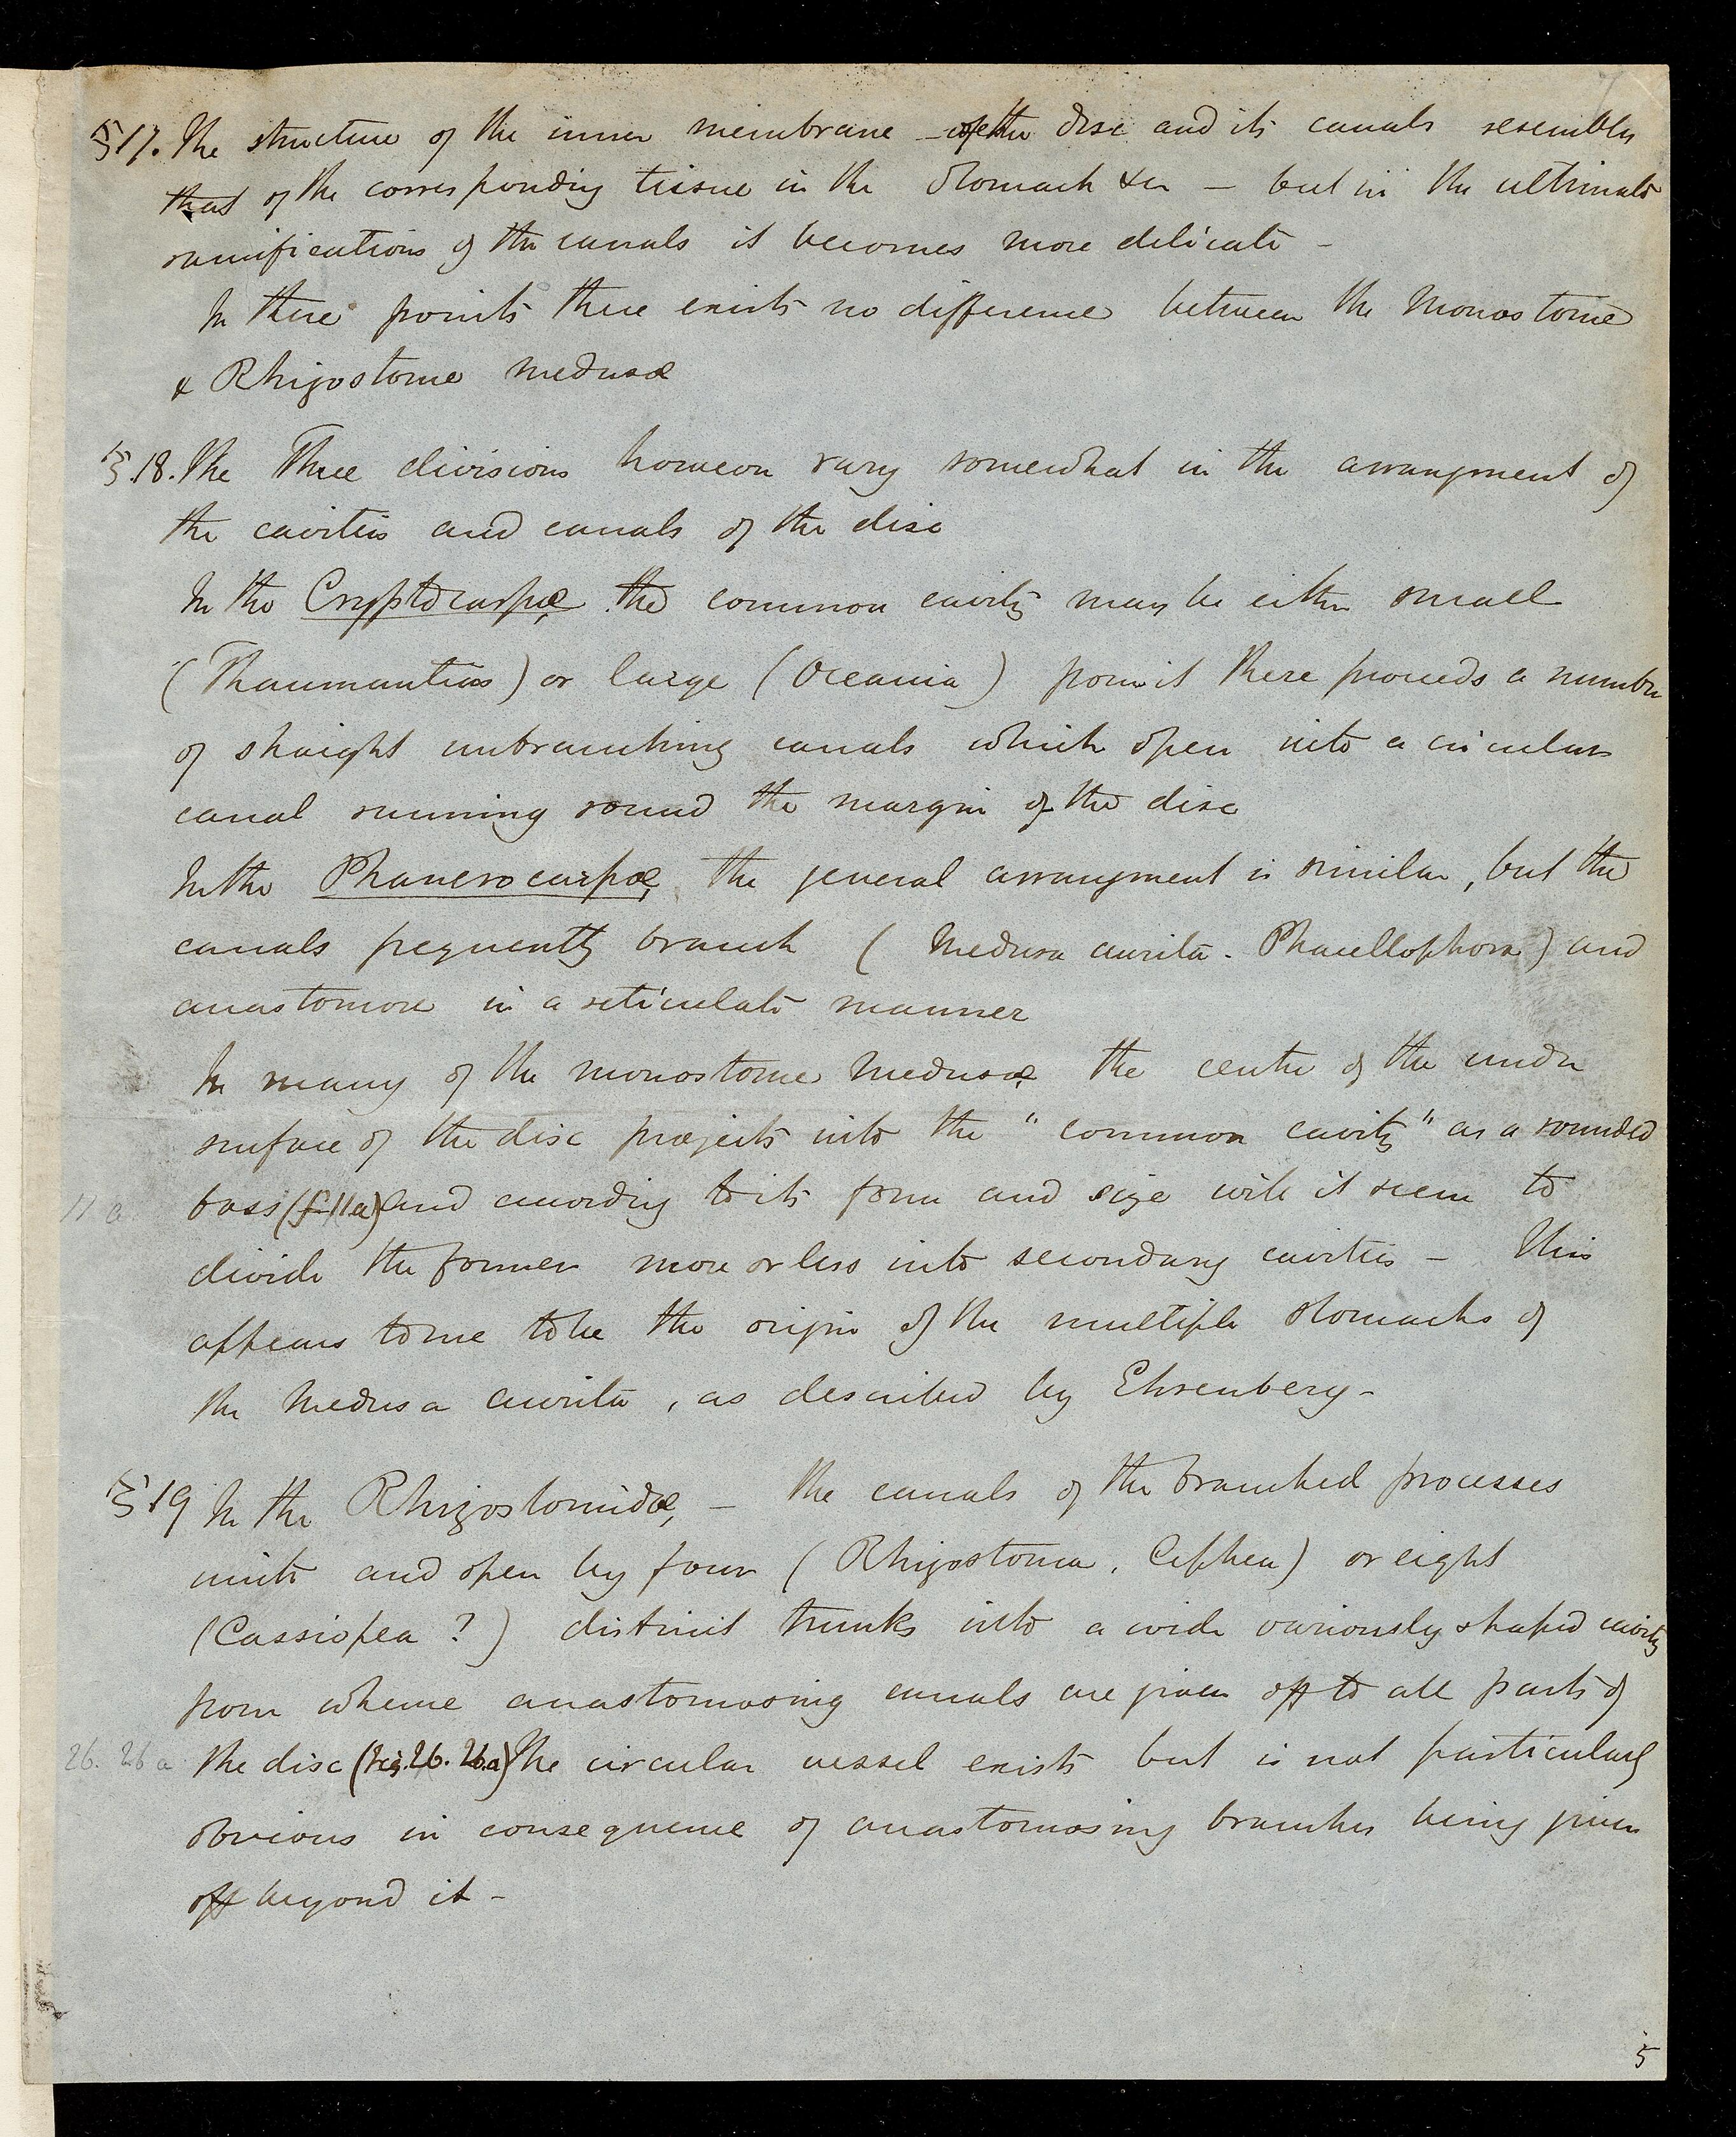 7
§17. The structure of the inner membrane of the disc and its canals resembles
that of the corresponding tissue in the stomach &c – but in the ultimate
ramifications of the canals it becomes more delicate –
In these points there exists no difference between the Monostome
& Rhizostome Medusæ
§.18. The Three divisions however vary somewhat in the arrangment of
the cavities and canals of the disc
In the Cryptocarpæ, the common cavity may be either small
(Thaumantias) or large (Oceania) from it there proceeds a number
of straight unbranching canals which open into a circular
canal running round the margin of the disc
In the Phanerocarpæ, the general arrangment is similar, but the
canals frequently branch ( Medusa aurita. Phacellophora) and
anastomose in a reticulate manner
In many of the monostome Medusæ, the centre of the under
surface of the disc projects into the "common cavity" as a rounded
11 a boss (f. 11a) and according to its form and size will it seem to
divide the former more or less into secondary cavities – This
appears to me to be the origin of the multiple stomachs of
the Medusa aurita, as described by Ehrenberg –
§19 In the Rhizostomidæ, – the canals of the branched processes
unite and open by four (Rhizostoma, Cephea) or eight
(Cassiopea ?) distinct trunks into a wide variously shaped cavity
from whence anastomosing canals are given off to all parts of
26. 26 a the disc (Fig. 26. 26.a) The circular vessel exists but is not particularly
obvious in consequence of anastomosing branches being given
off beyond it –
5